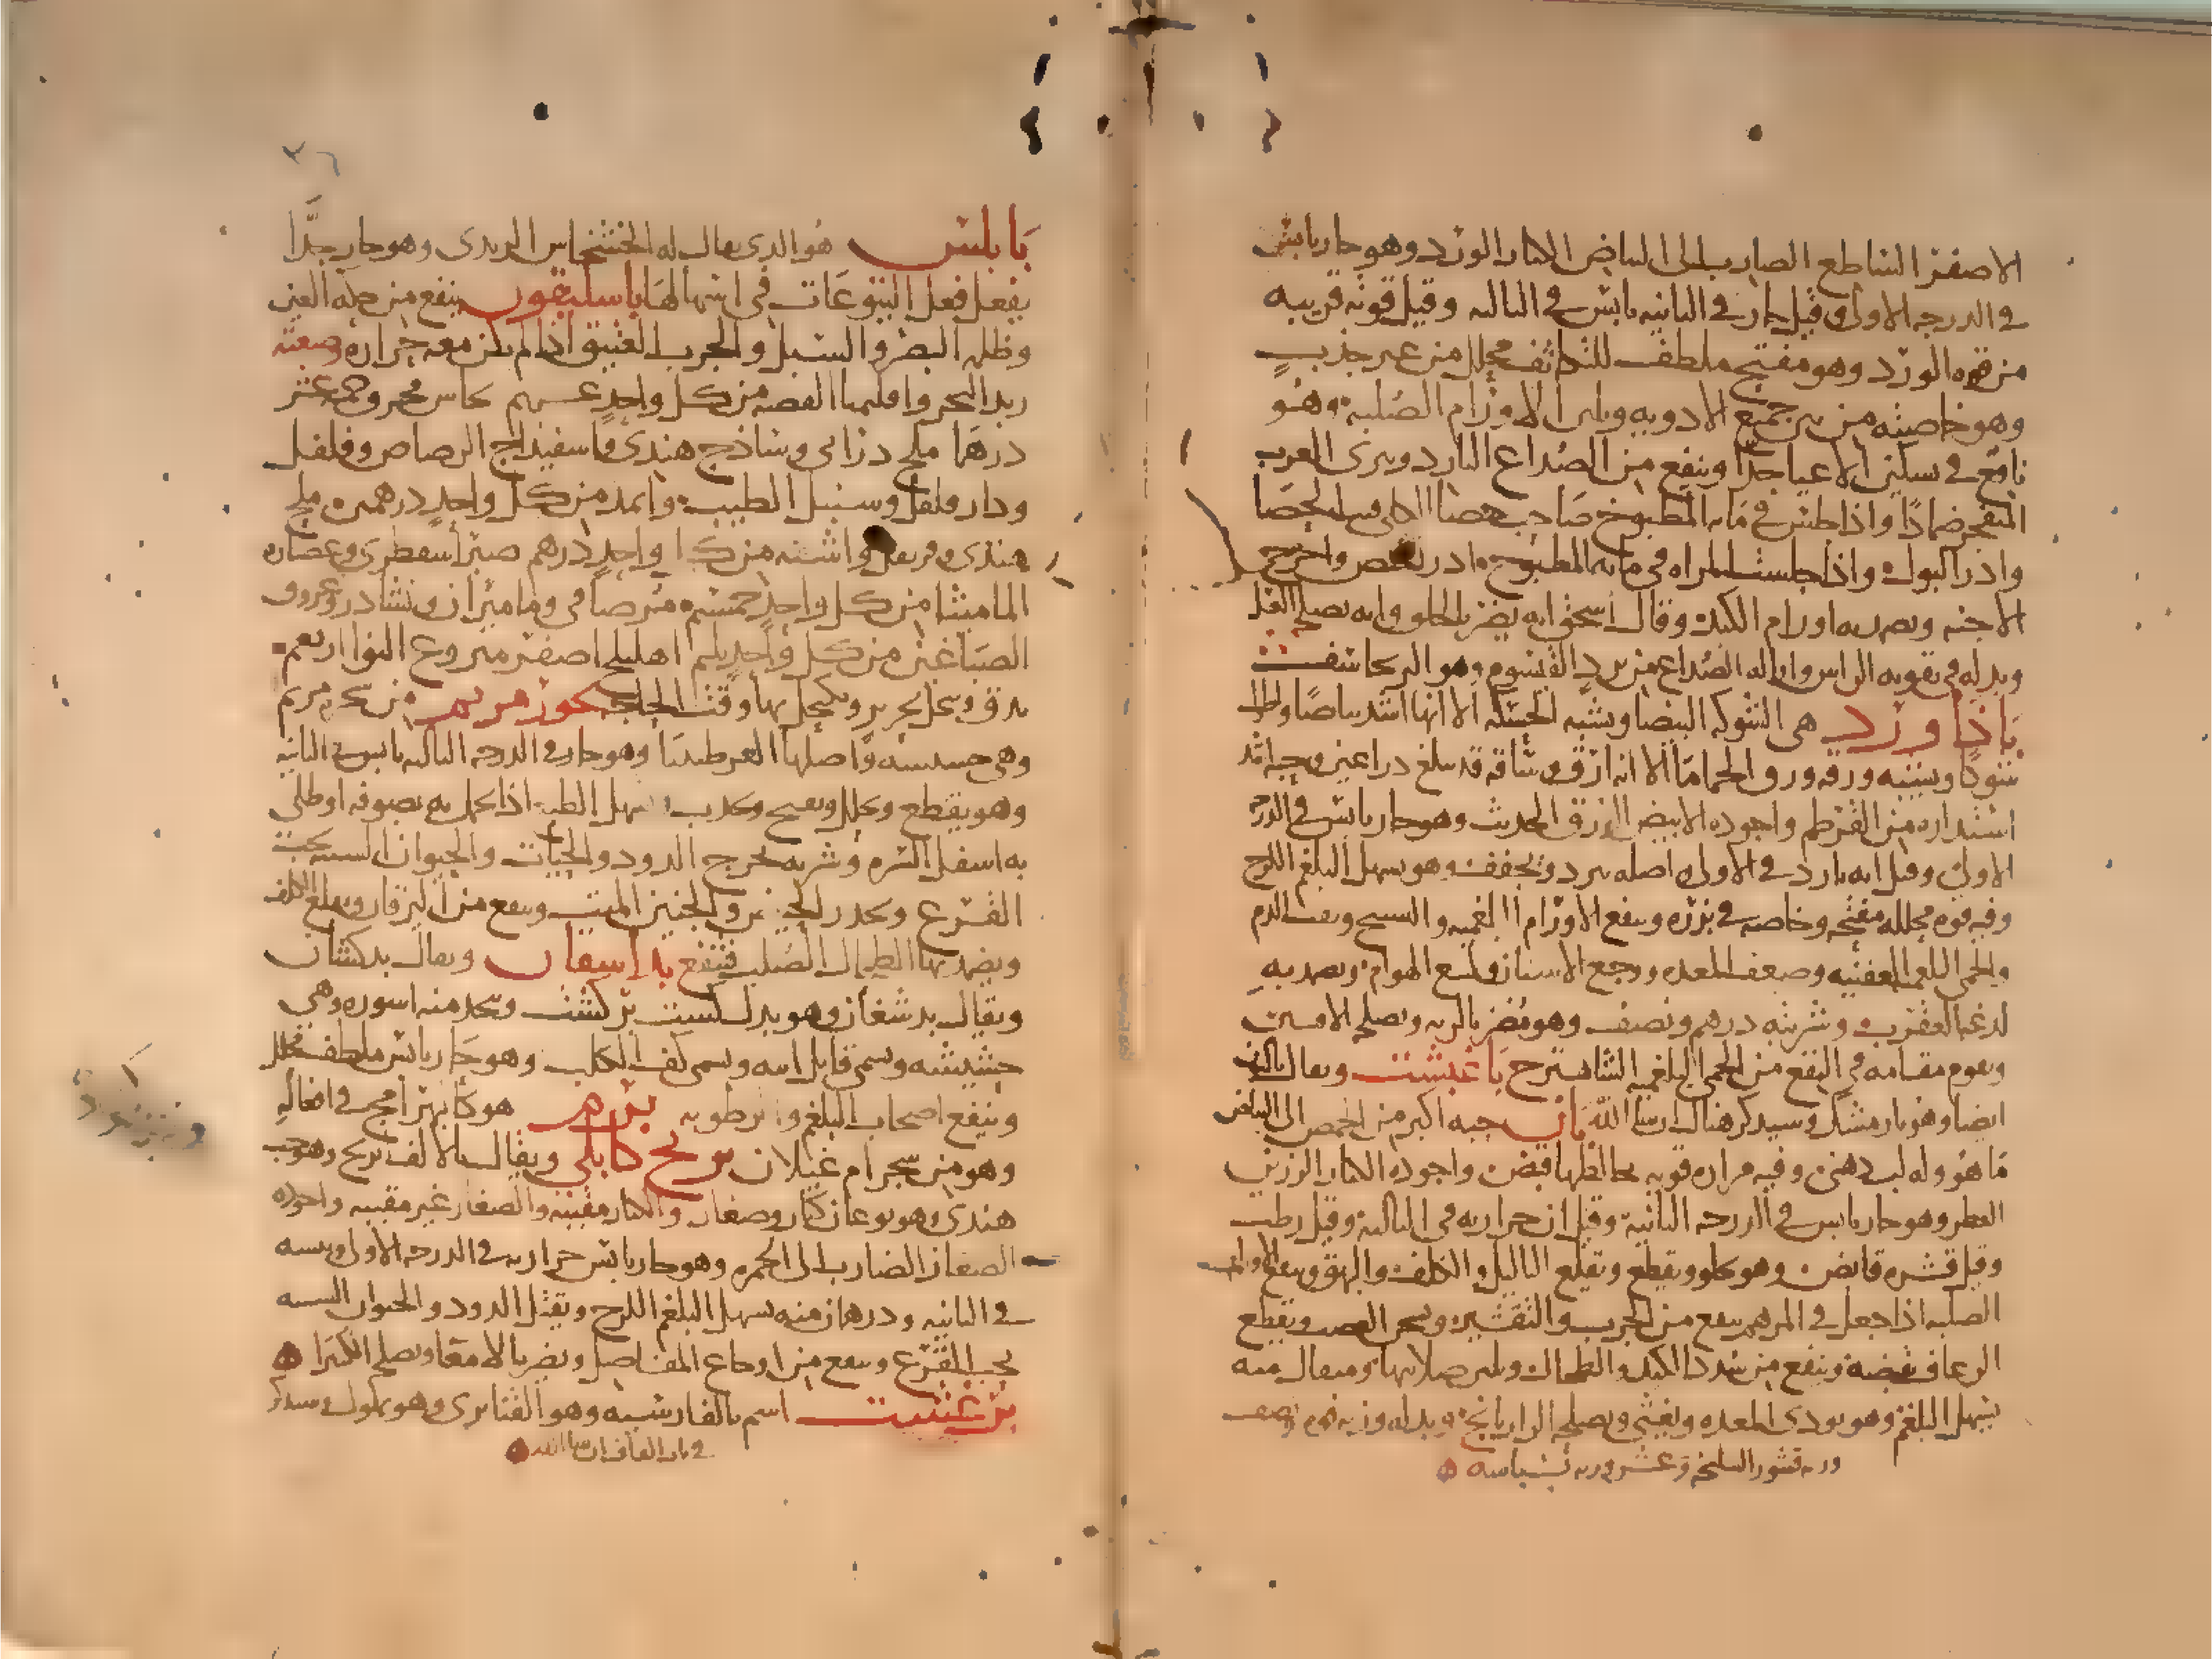 الاصفر الساطع الضارب الى البياض الكبار الورد وهو حار يابس
في الدرجه الاولى وقيل حار في الثانيه يابس في الثالثه وقيل قوته قريبه
من قوه الورد وهو مفتح ملطف للتكاثف محلل من غير جذب
وهو خاصيته من بين جميع الادويه ويلين الاورام الصلبه وهو
نافع في تسكين الاعيا جدا وينفع من الصداع البارد ويبرى الغرب
المنفجر ضمادا واذا جلس في مايه المطبوخ صاحب حصا الكلى الحصا
وادر البول واذا جلست المراه في مايه المطبوخ ادر واخرج
الاجنه ويضمد به اورام الكبد وقال اسحق انه يضر بالحلق وانه يصلحه العسل
وبدله في تقويه الراس وازاله الصداع من برد القيسوم وهو البرنجاسف
باذاورد هي الشوكه البيضا ويشبه الحسكه الا انها اشد بياضا واطول
شوكا ويشبه ورقه ورق الحماما الا انه ارق وساقه قد يبلغ ذراعين وحبه اشد
استداره من القرطم واجوده الابيض الحديث وهو حار يابس في الدرجه
الاولى وقيل انه بارد في الاولى اصله يبرد ويجفف وهو يسهل البلغم اللزج
وفيه قوه محلله مفتحه وخاصه في بزره وينفع الاورام البلغميه والتشنج ونفث الدم
والحمى البلغميه العفنيه وضعف المعده ووجع الاسنان ولسع الهوام ويضمد به
لدغه العقرب وشربته درهم ونصف وهو يضر بالريه ويصلحه الافسنتين
ويقوم مقامه في النفع من الحمى البلغميه الشاهترج باغيشت ويقال
ايضا وهو بارمشك وسيذكر هناك ان شا الله بان حبه اكبر من الحمص الى البياض
ما هو وله لب دهنى وفيه مراره قويه يخالطها قبض واجوده الكبار الرزين
العطر وهو حار يابس في الدرجه الثانيه وقيل ان حرارته في الثالثه وقيل رطب
وقيل قشره قابض وهو يجلو ويقطع ويقلع الثاليل والكلف والبهق وينفع الاورام
الصلبه اذا جعل في المرهم ينفع من الجرب والتقشير ويسخن العصب ويقطع
الرعاف بقبضه وينفع من سدد الكبد والطحال ويلين صلابتها ومثقال منه
يسهل البلغم وهو يوذى المعده ويغثى ويصلحه الرازيانج وبدله وزنه فوه ونصف
وزنه قشور السليخه وعشر وزنه بسباسه
٣٦
بابلس هو الذي يقال له الخشخاش الزبدى وهو حار جدا
يفعل فعل اليتوعات في اسهالها باسليقون ينفع من حكه العين
وظلمه البصر والسبل والجرب العتيق اذا لم يكن معه حراره وصفته
زبد البحر واقليميا الفضه من كل واحد عشره دراهم نحاس محروق خمسه عشر
درهما ملح دراني وساذج هندى واسفيداج الرصاص وفلفل
ودارفلفل وسنبل الطيب واثمد من كل واحد درهمين ملح
هندى وقرنفل واشنه من كل واحد درهم صبر اسقطرى وعصاره
الماميثا من كل واحد خمسه دراهم وماميران ونشادر وعروق
الصباغين من كل واحد اهليلج اصفر منزوع النوا اربعه
يدق وينخل بحرير ويكتحل بها وقت الحاجه بخور مريم من شجر مريم
وهي خشبيه واصلها العرطنيثا وهو حار في الدرجه الثالثه يابس في الثانيه
وهو يقطع ويحلل ويفتح ويجذب ويسهل الطبع اذا تحمل به بصوفه او طلى
به اسفل السره وشربه يخرج الدود والحيات والحيوان الشبيه بحب
القرع ويحدر الحيض والجنين الميت وينفع من اليرقان ويقلع الكلف
ويضمد بها الطحال الصلب فتنفع بداسقان ويقال بدكشان
ويقال بدشغان وهو بدل كشت بركشت ويتخذ منه اسوره وهي
حشيشه وسمى قاتل ابيه ويسمى كف الكلب وهو حار يابس ملطف محلل
وينفع اصحاب البلغم والرطوبه برهم هو كالبهرامج في افعاله
وهو من شجر ام غيلان برنج كابلى ويقال بالالف برنج وهو حب
هندى وهو نوعان كبار وصغار والكبار مقيته والصغار غير مقيته واجوده
الصغار الضارب الى الحمره وهو حار يابس حرارته في الدرجه الاولى ويبسه
في الثانيه ودرهمان منه يسهل البلغم اللزج ويقتل الدود والحيوان الشبيه
بحب القرع وينفع من اوجاع المفاصل ويضر بالامعا ويصلحه الكثيرا
برغشت اسم بالفارسيه وهو القنابرى وهو يملول وسيذكر
في باب القاف ان شا الله